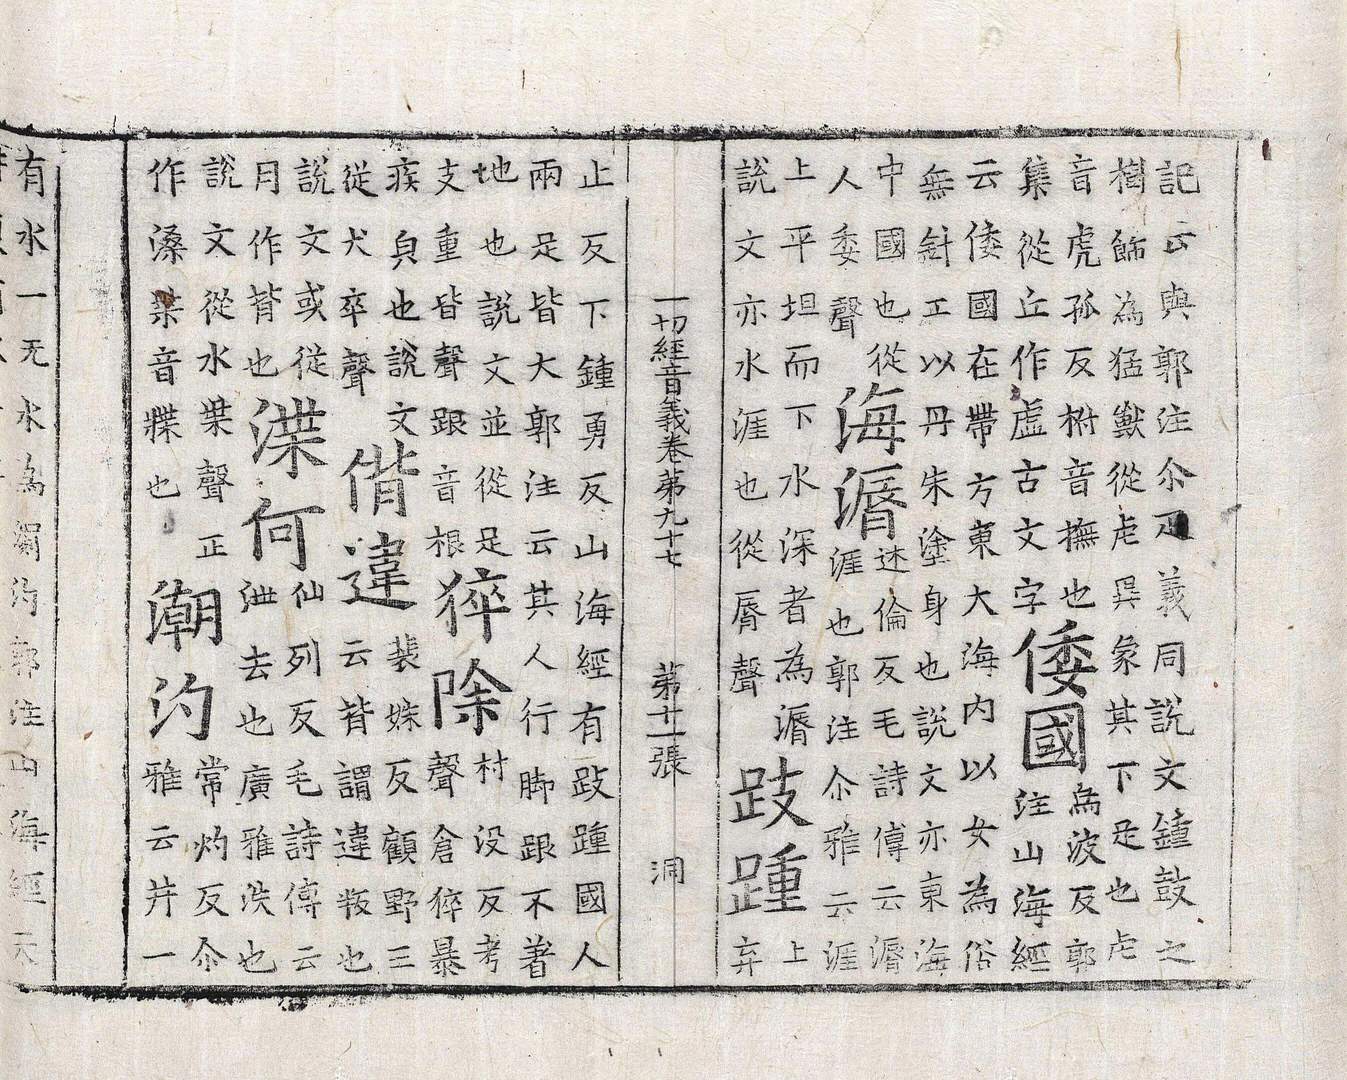 記云與郭注尒疋義同說文鍾鼓之
樹飾為猛獸從虍異象其下足也虍
音虎孤反柎音撫也
集從丘作虛古文字
倭國
烏波反郭
注山海經
云倭國在帶方東大海內以女為俗
無針工以丹朱塗身也說文亦東海
中國也從
人委聲
海漘
述倫反毛詩傳云漘
涯也郭注尒雅云涯
上平坦而下水深者為漘
說文亦水涯也從脣聲
跂踵
上
弃
一切經音義卷第九十七 第十一張 洞
止反下鍾勇反山海經有跂踵國人
兩足皆大郭注云其人行脚跟不著
地也說文並從足
支重皆聲跟音根
猝除
村沒反考
聲倉猝暴
疾皃也說文
從犬卒聲
偕違
裴姝反顧野三
云揹謂違叛也
說文或從
月作揹也
渫何
仙列反毛詩傳云
泄去也廣雅渫也
說文從水枼聲正
作㵃枼音牒也
潮汋
常灼反尒
雅云井一
有水一无水為瀾汋郭注山海經天